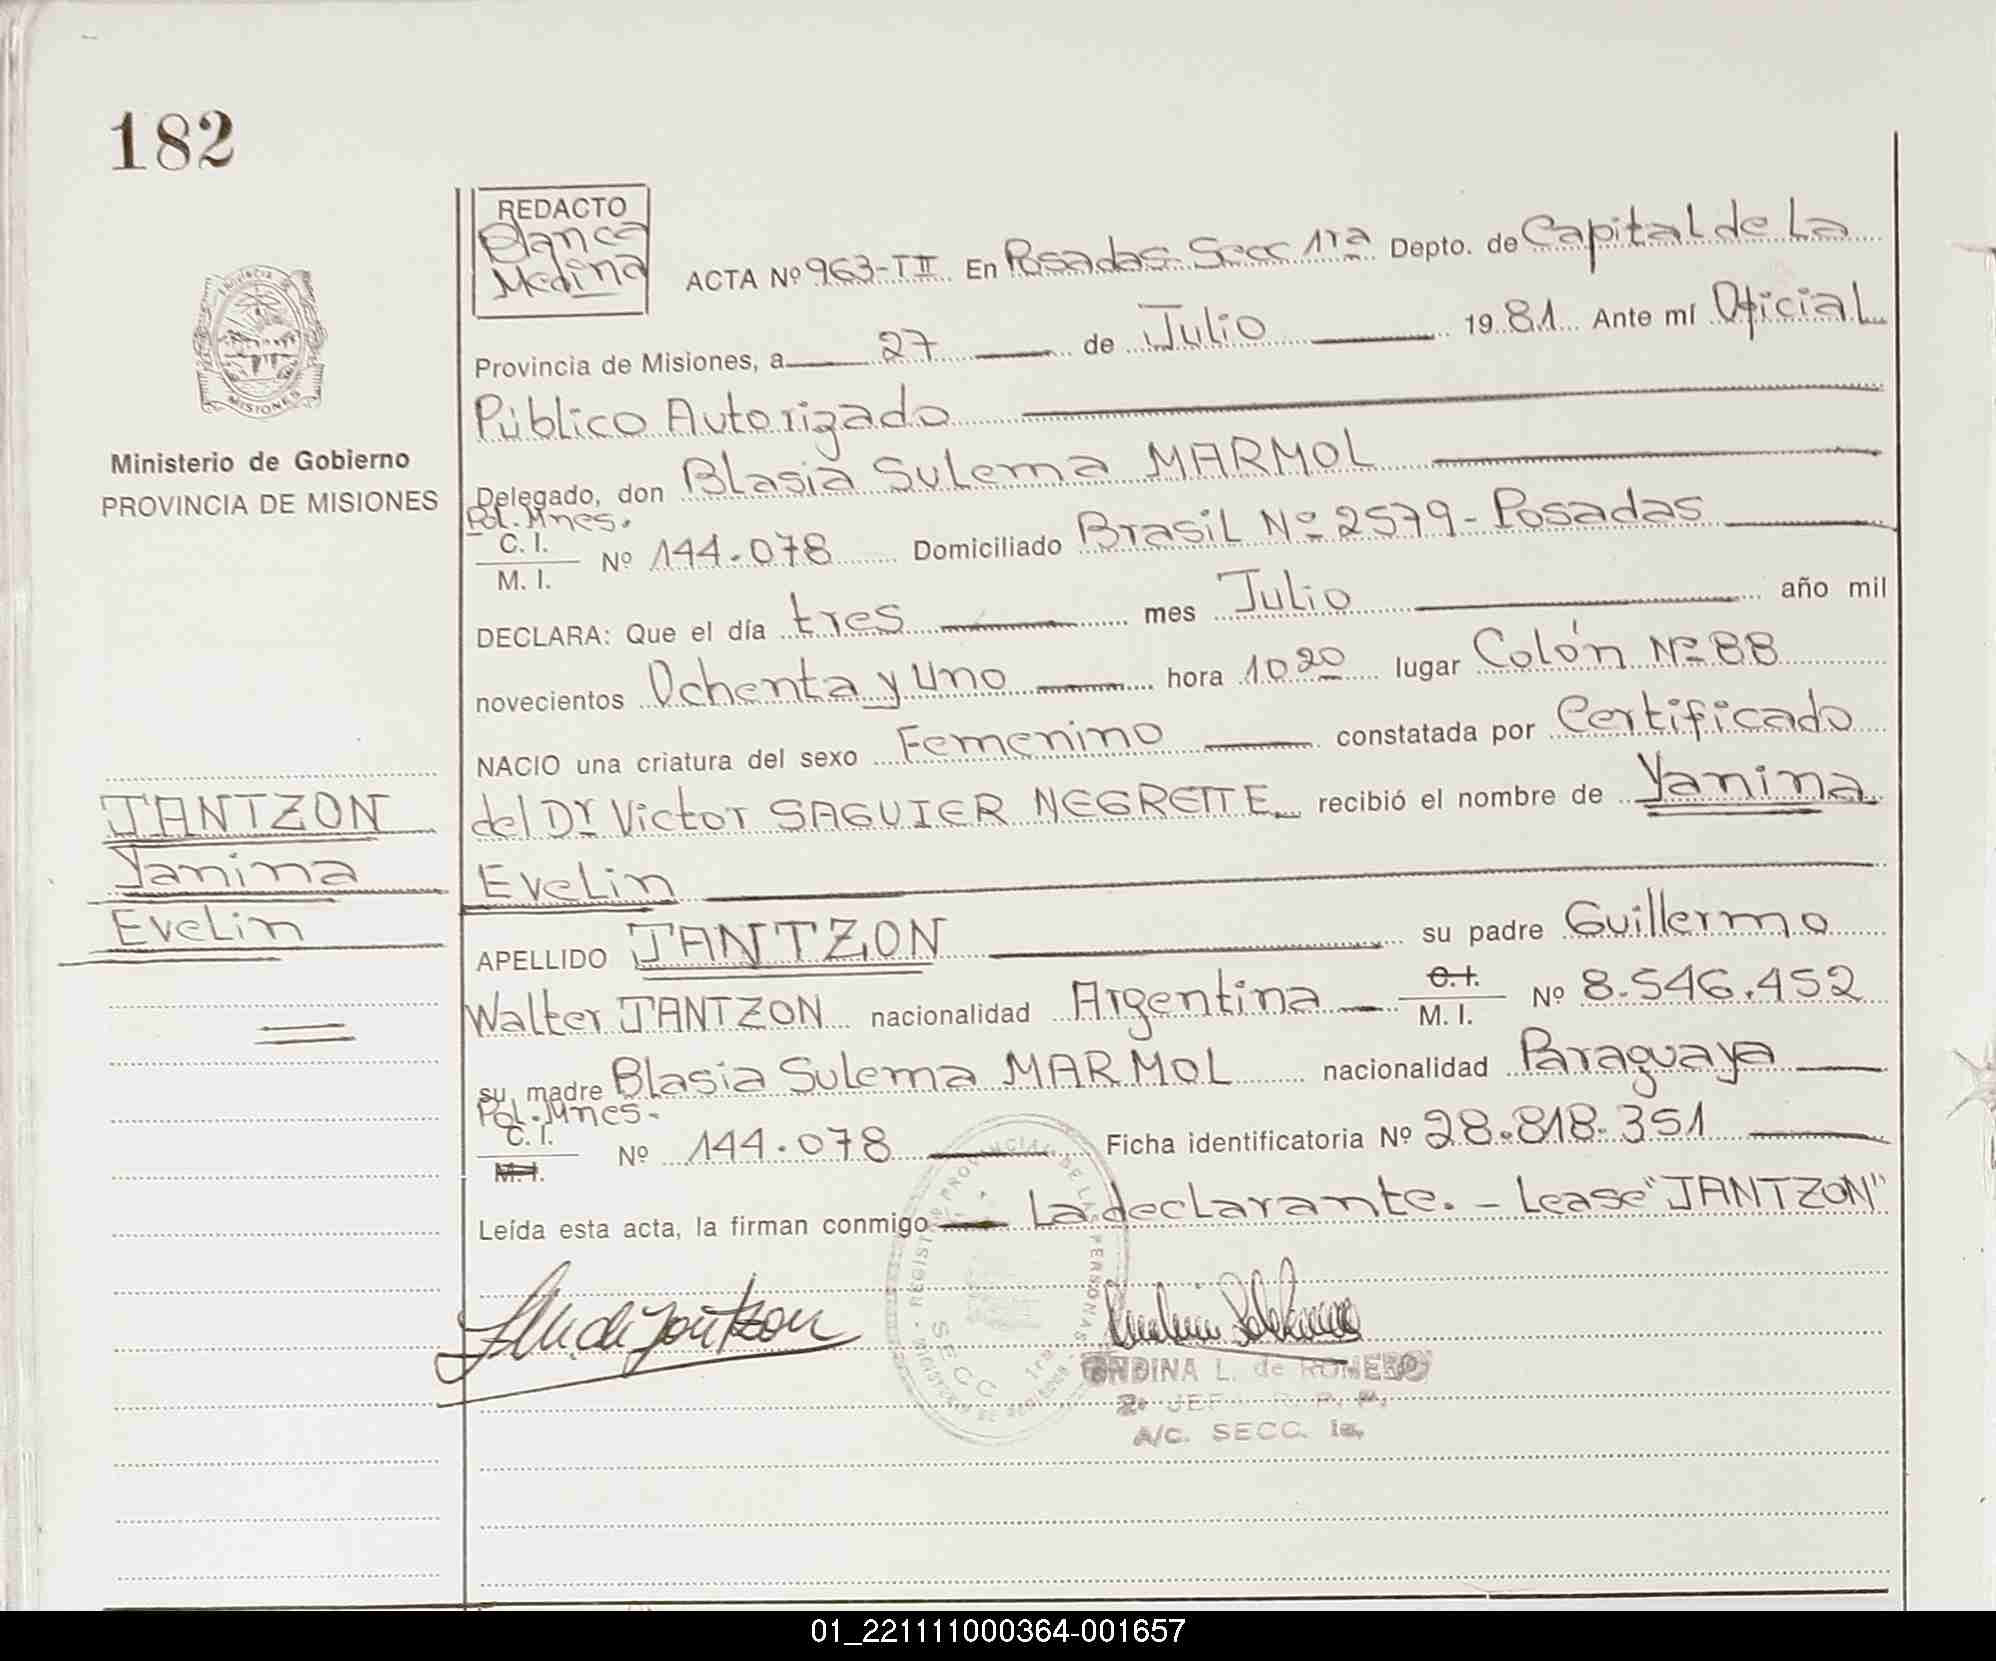 182
REDACTO
Blanca
Medina
ACTA Nº 963-TII En Posadas-Secc 1ra Depto. de Capital de La
Provincia de Misiones, a 27 de Julio 1981 Ante mí Oficial
Público Autorizado
Delegado, don Blasia Sulema MARMOL
Pol. Mnes.
C. I.
M. I. Nº 144.078 Domiciliado Brasil Nº 2579-Posadas
DECLARA: Que el día tres mes Julio año mil
novecientos Ochenta y Uno hora 10 20 lugar Colón Nº 88
NACIO una criatura del sexo Femenino constatada por Certificado
del Dr Victor SAGUIER NEGRETTE recibió el nombre de Yanina
Evelin
APELLIDO JANTZON su padre Guillermo
Walter JANTZON nacionalidad Argentina C. I. M. I. Nº 8.546.452
su madre Blasia Sulema MARMOL nacionalidad Paraguaya
Pol. Mnes.
C. I.
M. I. Nº 144.078 Ficha identificatoria Nº 28.818.351
Leída esta acta, la firman conmigo La declarante. - Lease "JANTZON"
PROVINCIA
MISIONES
Ministerio de Gobierno
PROVINCIA DE MISIONES
JANTZON
Yanina
Evelin
REGISTRO PROVINCIAL DE LAS PERSONAS
SECC 1ra
ONDINA L. de ROMERO
A/C. SECC. 1a.
01_221111000364-001657